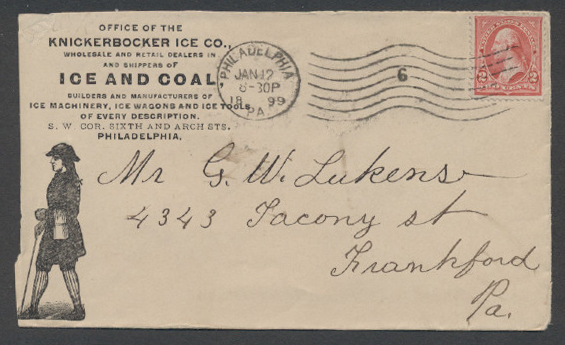 OFFICE OF THE
KNICKERBOCKER ICE CO.,
WHOLESALE AND RETAIL DEALERS IN
AND SHIPPERS OF
ICE AND COAL
BUILDERS AND MANUFACTURERS OF
ICE MACHINERY, ICE WAGONS AND ICE TOOLS
OF EVERY DESCRIPTION.
S. W. COR. SIXTH AND ARCH STS.
PHILADELPHIA.
PHILADELPHIA
JAN 12
6-30P
18 99
PA.
6
2 2
Mr G. W. Lukens
4343 Tacony st
Frankford
Pa.